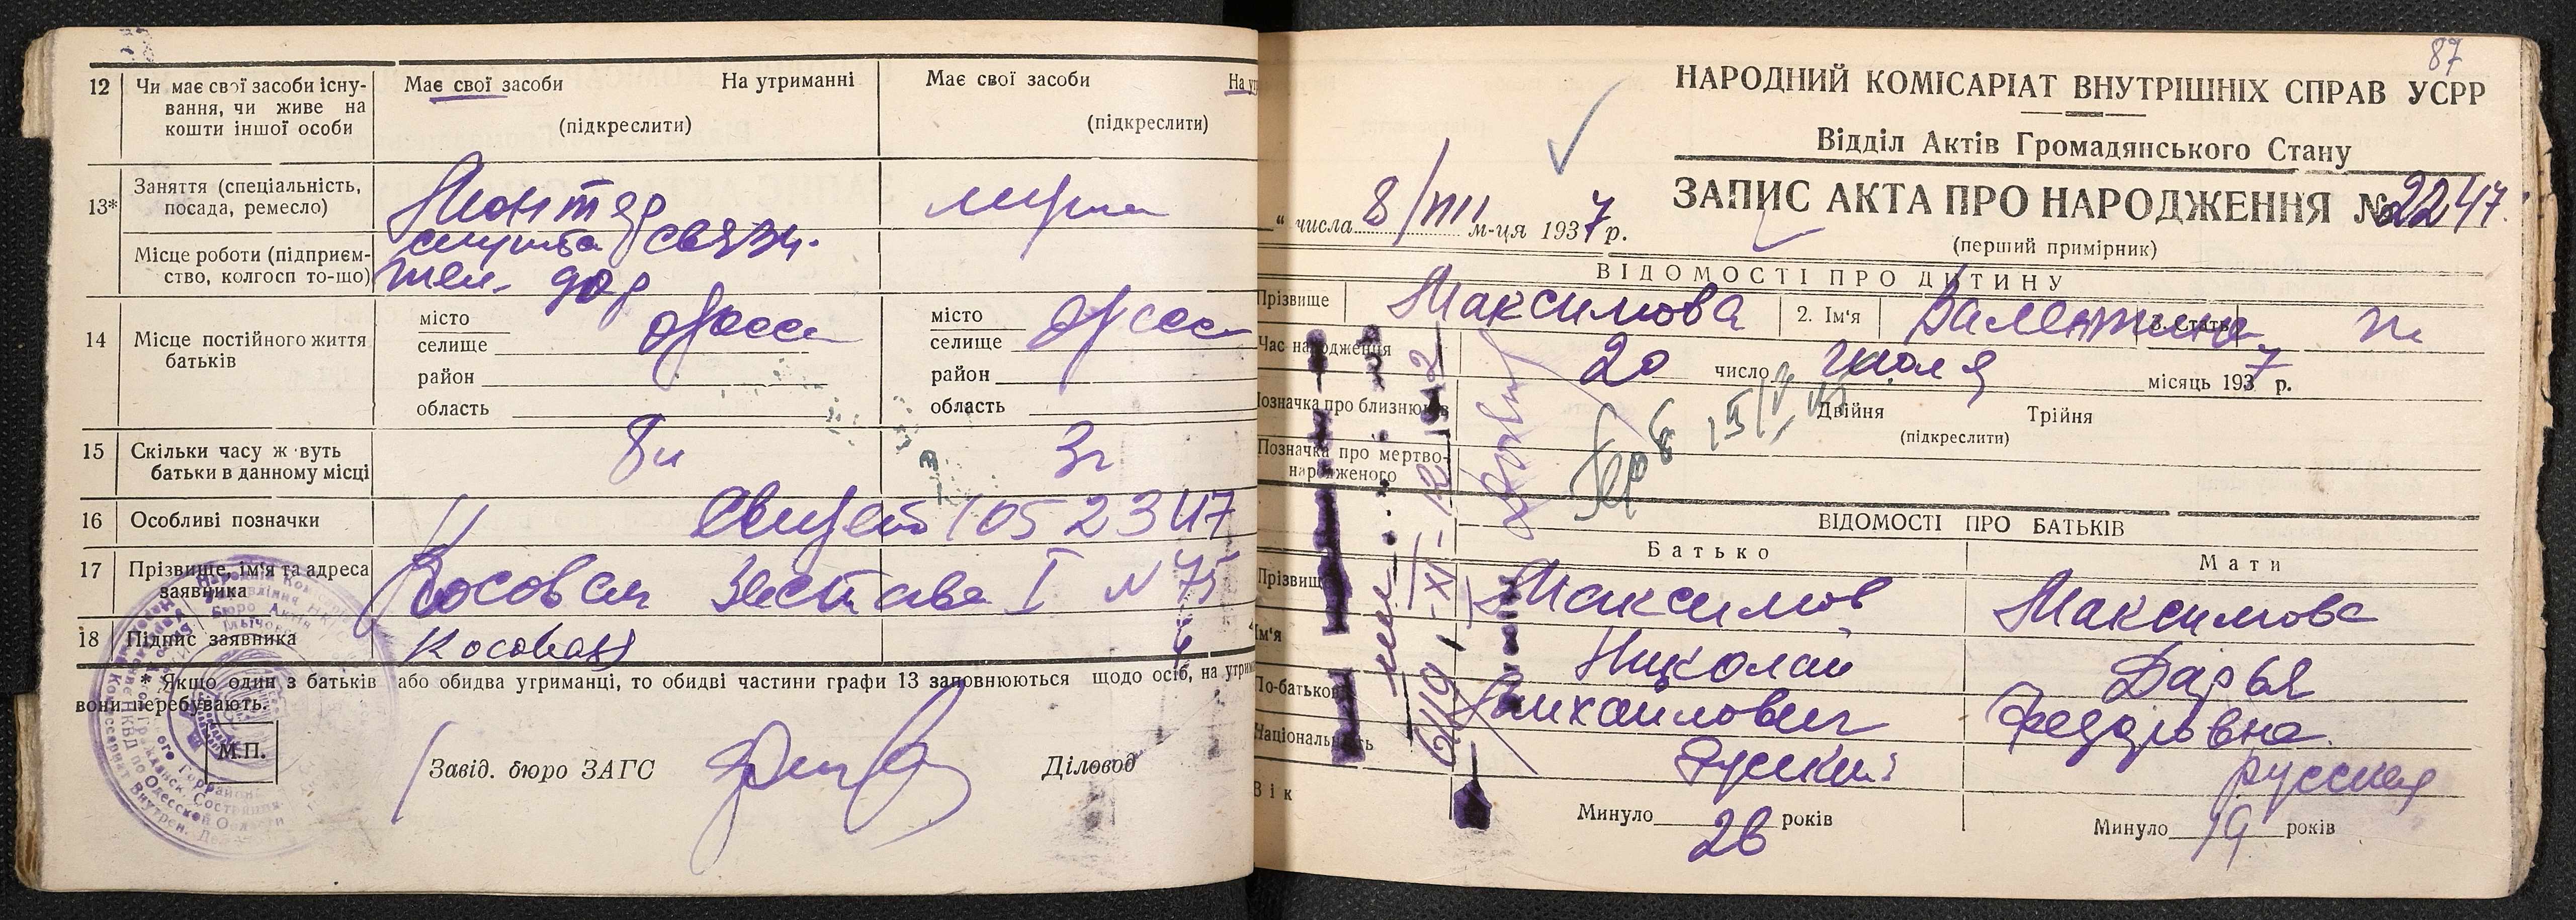 12 Чи має свої засоби існу-
вання, чи живе на
кошти іншої особи
Має свої засоби На утриманні
(підкреслити)
Має свої засоби На ут
(підкреслити)
13* Заняття (спеціальність,
посада, ремесло)
Монтер
Місце роботи (підприєм-
ство, колгосп то-що)
служба связи
жел. дор
14 Місце постійного життя
батьків
місто
селище
район
область
Одесса
місто
селище
район
область
Одесса
15 Скільки часу ж вуть
батьки в данному місці
8л
3г
16 Особливі позначки
17 Прізвище, ім'я та адреса
заявника
Косовам Застава I N 75
18 Підпис заявника
* Якщо один з батьків або обидва утриманці, то обидві частини графи 13 заповнюються щодо осіб, на утрим
вони перебувають.
М.П.
Завід. бюро ЗАГС
Діловод
87
НАРОДНИЙ КОМІСАРІАТ ВНУТРІШНІХ СПРАВ УСРР
Відділ Актів Громадянського Стану
ЗАПИС АКТА ПРО НАРОДЖЕННЯ № 2247
(перший примірник)
" числа 8/VIII м-ця 1937 р.
ВІДОМОСТІ ПРО ДИТИНУ
Прізвище Максимова 2. Ім'я Валентина 3. Стать ж
Час народження 20 число июля місяць 1937 р.
Позначка про близнюків
Двійня Трійня
(підкреслити)
Позначка про мертво-
народженого
ВІДОМОСТІ ПРО БАТЬКІВ
Батько Мати
Прізвищ Максимов Максимова
Ім'я Николай Дарья
По-батькові Михайлович Федоровна
Національність Русский русская
Вік Минуло 26 років Минуло 19 років